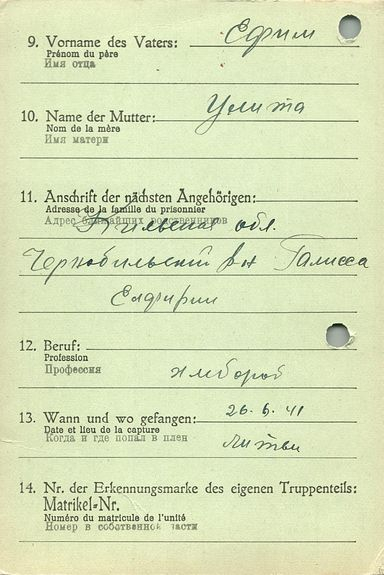 9. Vorname des Vaters: Ефим
Prénom du père
Имя отца
10. Name der Mutter: Улита
Nom de la mère
Имя матери
11. Anschrift der nächsten Angehörigen:
Adresse de la famille du prisonnier
Адрес ближайших родственников
Киевская обл.
Чернобильский рн Галисса
12. Beruf:
Profession
Профессия
хлібороб
13. Wann und wo gefangen: 26.6.41
Date et lieu de la capture
Когда и где попал в плен
Литви
14. Nr. der Erkennungsmarke des eigenen Truppenteils:
Matrikel=Nr.
Numéro du matricule de l'unité
Номер в собственной части